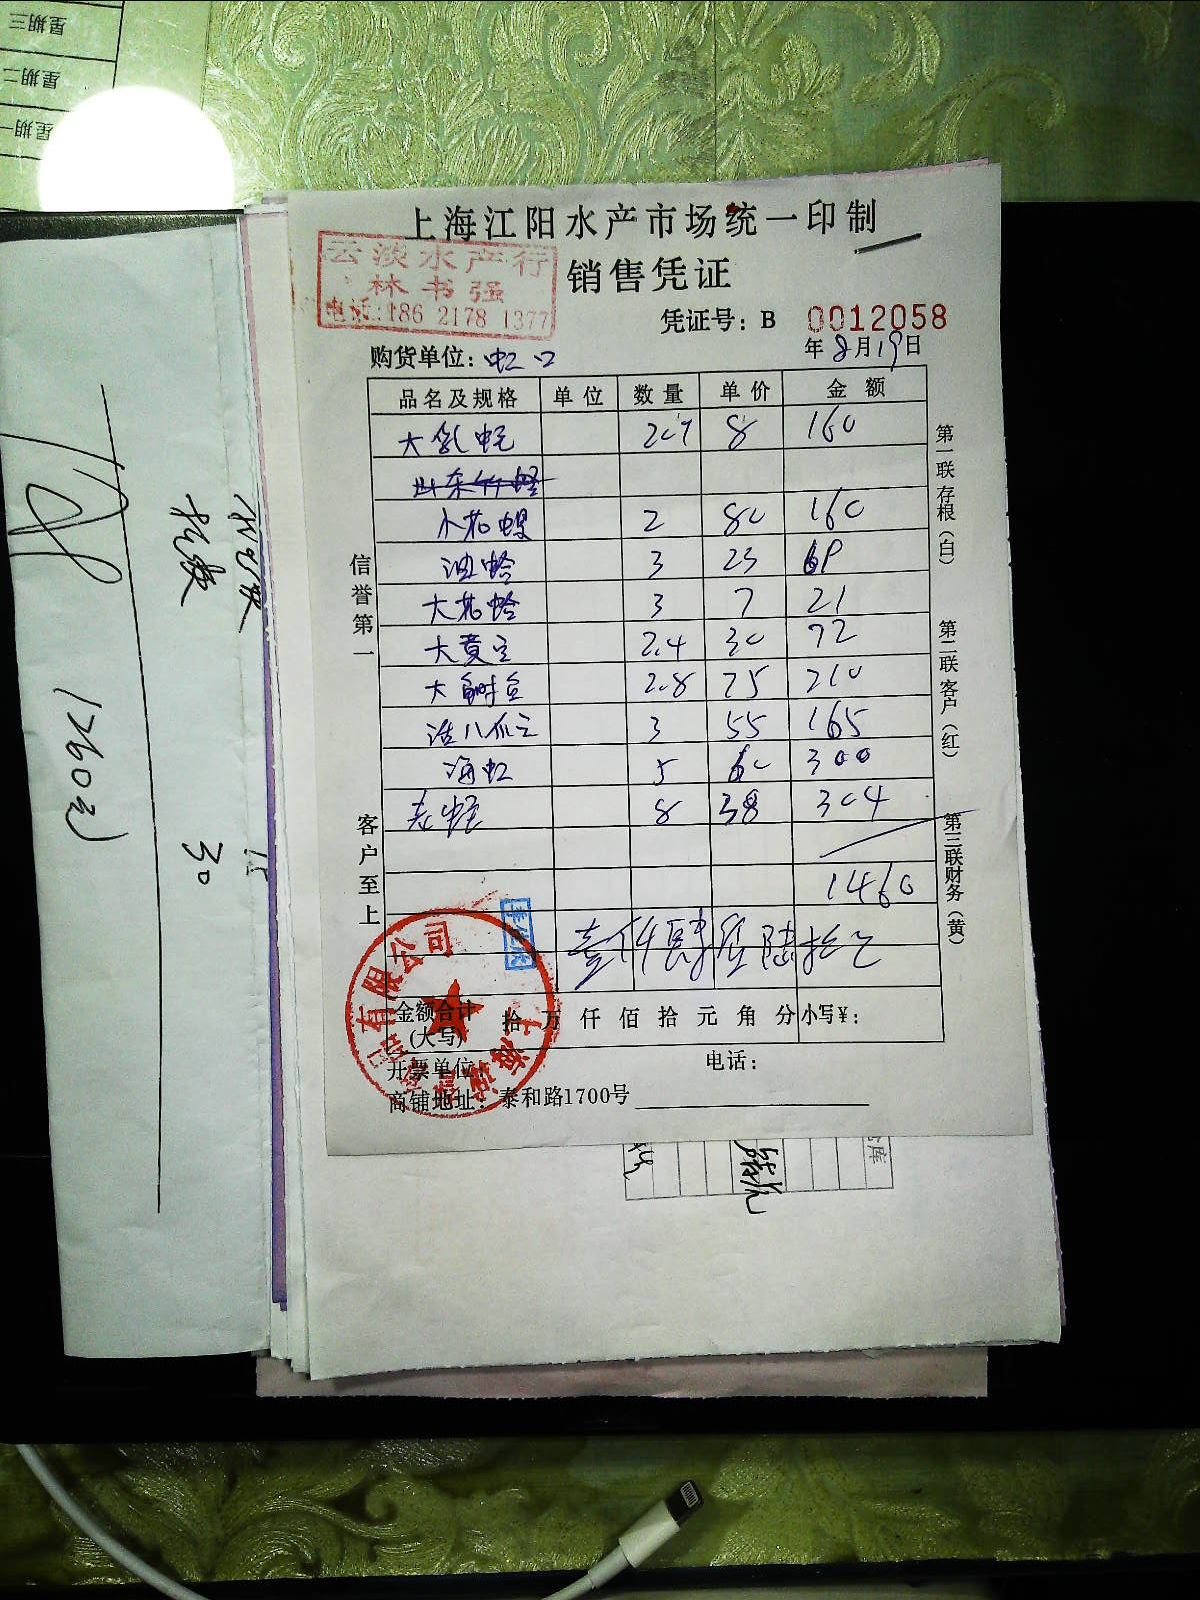 星期三
星期二
星期一
上海江阳水产市场统一印制
云淡水产行
林书强
电话:186 2178 1377
销售凭证
凭证号: B 0012058
年8月19日
购货单位: 虹口
品名及规格 单位 数量 单价 金额
大乳蚝 20.7 8 160
小花螺 2 80 160
油蛤 3 23 69
大花蛤 3 7 21
大黄 2.4 30 72
大 2.8 75 210
活八爪 3 55 165
海虹 5 60 300
8 38 304
1460
壹仟肆佰陆拾元
金额合计(大写) 拾 万 仟 佰 拾 元 角 分 小写¥:
开票单位:
电话:
商铺地址: 泰和路1700号
信誉第一
客户至上
第一联存根(白)
第二联客户(红)
第三联财务(黄)
有限公司
上海
30
15
1760元
库